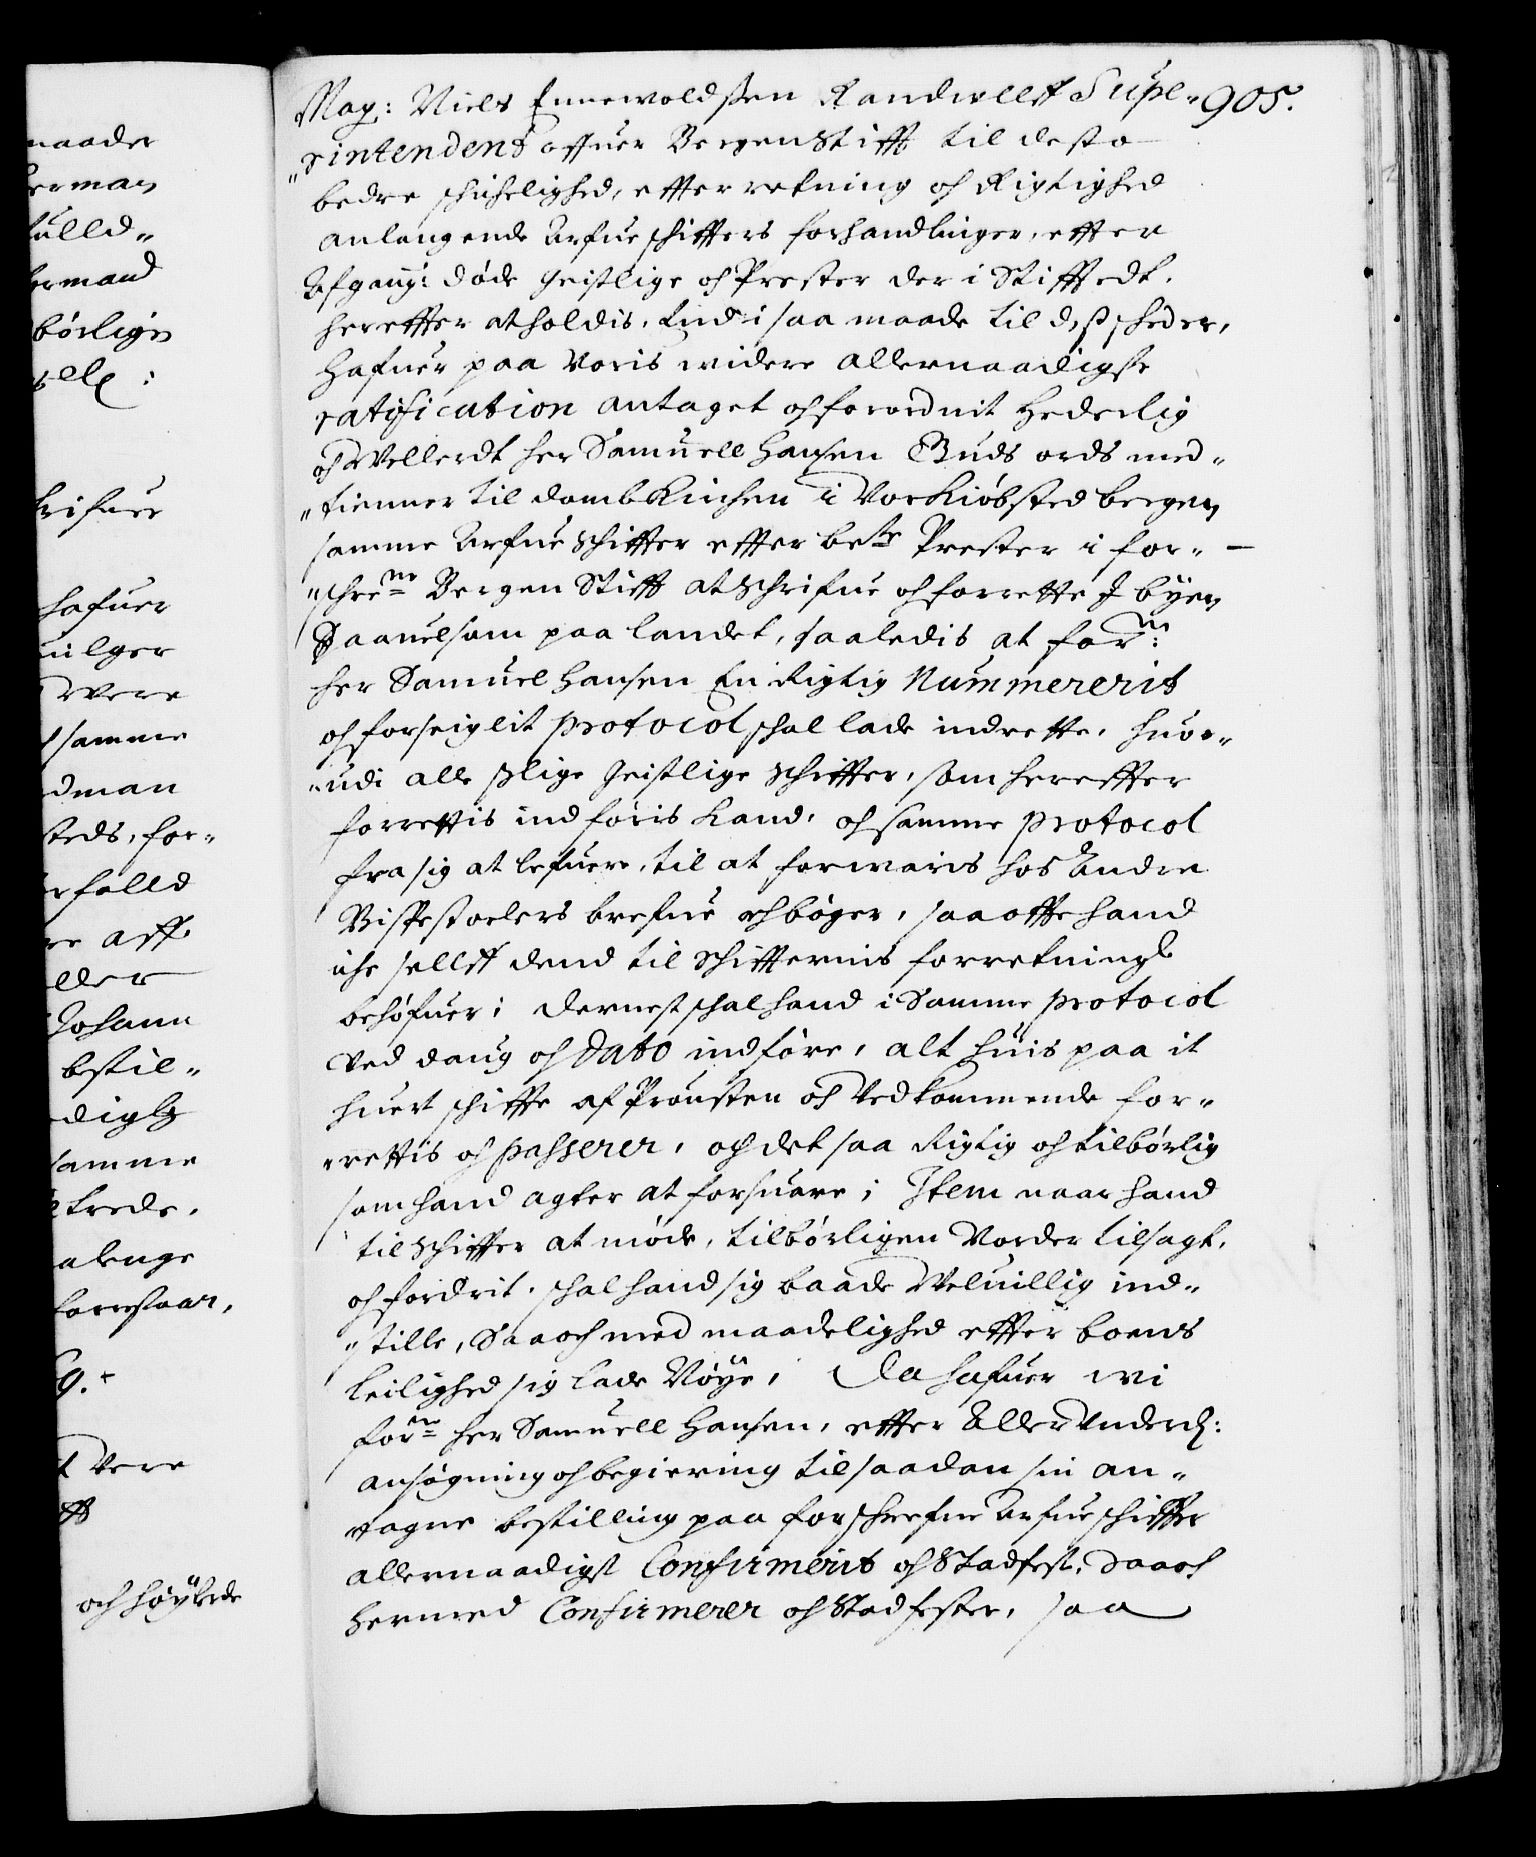 naader
erman
ulld„
ermand
börlign
elle:
krifuer
hafuer
ilger
were
samme
dman
steds, for„
rfalld
re aff
ller
Johann
bestil„
digst
samme
trede.
alenge
forestaar,
9.
t vere
och höybrde
905.
Mag: Niels Ennewoldssen Randuleff Supe„
„rintendent offuer Bergen Stifft til desto
bedre schichelighed, efterretning och Rigtighed
anlangende Arfue schiffters forhandlinger, effter
Afgang: döde geistlige och Prester der i Stifftedt.
hereffter at holdis. End i saa maade til dess scheder,
Hafuer paa Voris widere allernaadigste
ratification antaget och forordnit Hederlig
och Wellerdt her Samuell Hansen Guds ords med„
„tienner til dombkirchen i Vor Kiöbsted bergen
samme Arfue schiffter effter bete Prester i for„
„schrne Bergen Stifft at schrifue och forrette I byen
Saauelsom paa landet, saaledis at forn:
her Samuel Hansen En Rigtig Nummererit
och forseiglit protocol schal lade indrette, huor„
„udi alle slige geistlige schiffter, som hereffter
forrettis indföris kand, och samme protocol
fra sig at lefuere, til at forwaris hos Andre
Bispestoelers brefue och böger, saa offte hand
iche sellff dend til schiffternis forretning
behöfuer; dernest schal hand i Samme protocol
ved daug och dato indföre, alt huis paa it
huert schiffte af Prousten och vedkommende for„
„rettis och passerer, och det saa Rigtig och tilbörlig
som hand agter at forsuare; Item naar hand
til schiffter at möde, tilbörligen vorder tilsagt,
och fordrit, schal hand sig baade Veluillig ind„
„stille, Saa och med maadelighed effter boens
leilighed sig lade Nöye, Da hafuer wi
forne her Samuell Hansen, effter Allerunderd:
ansögning och begiering til saadan sin an„
„tagne bestilling paa forschrefne Arfue schiffter
allernaadigst Confirmerit och Stadfest, Saa och
hermed Confirmerer och Stadfester, saa